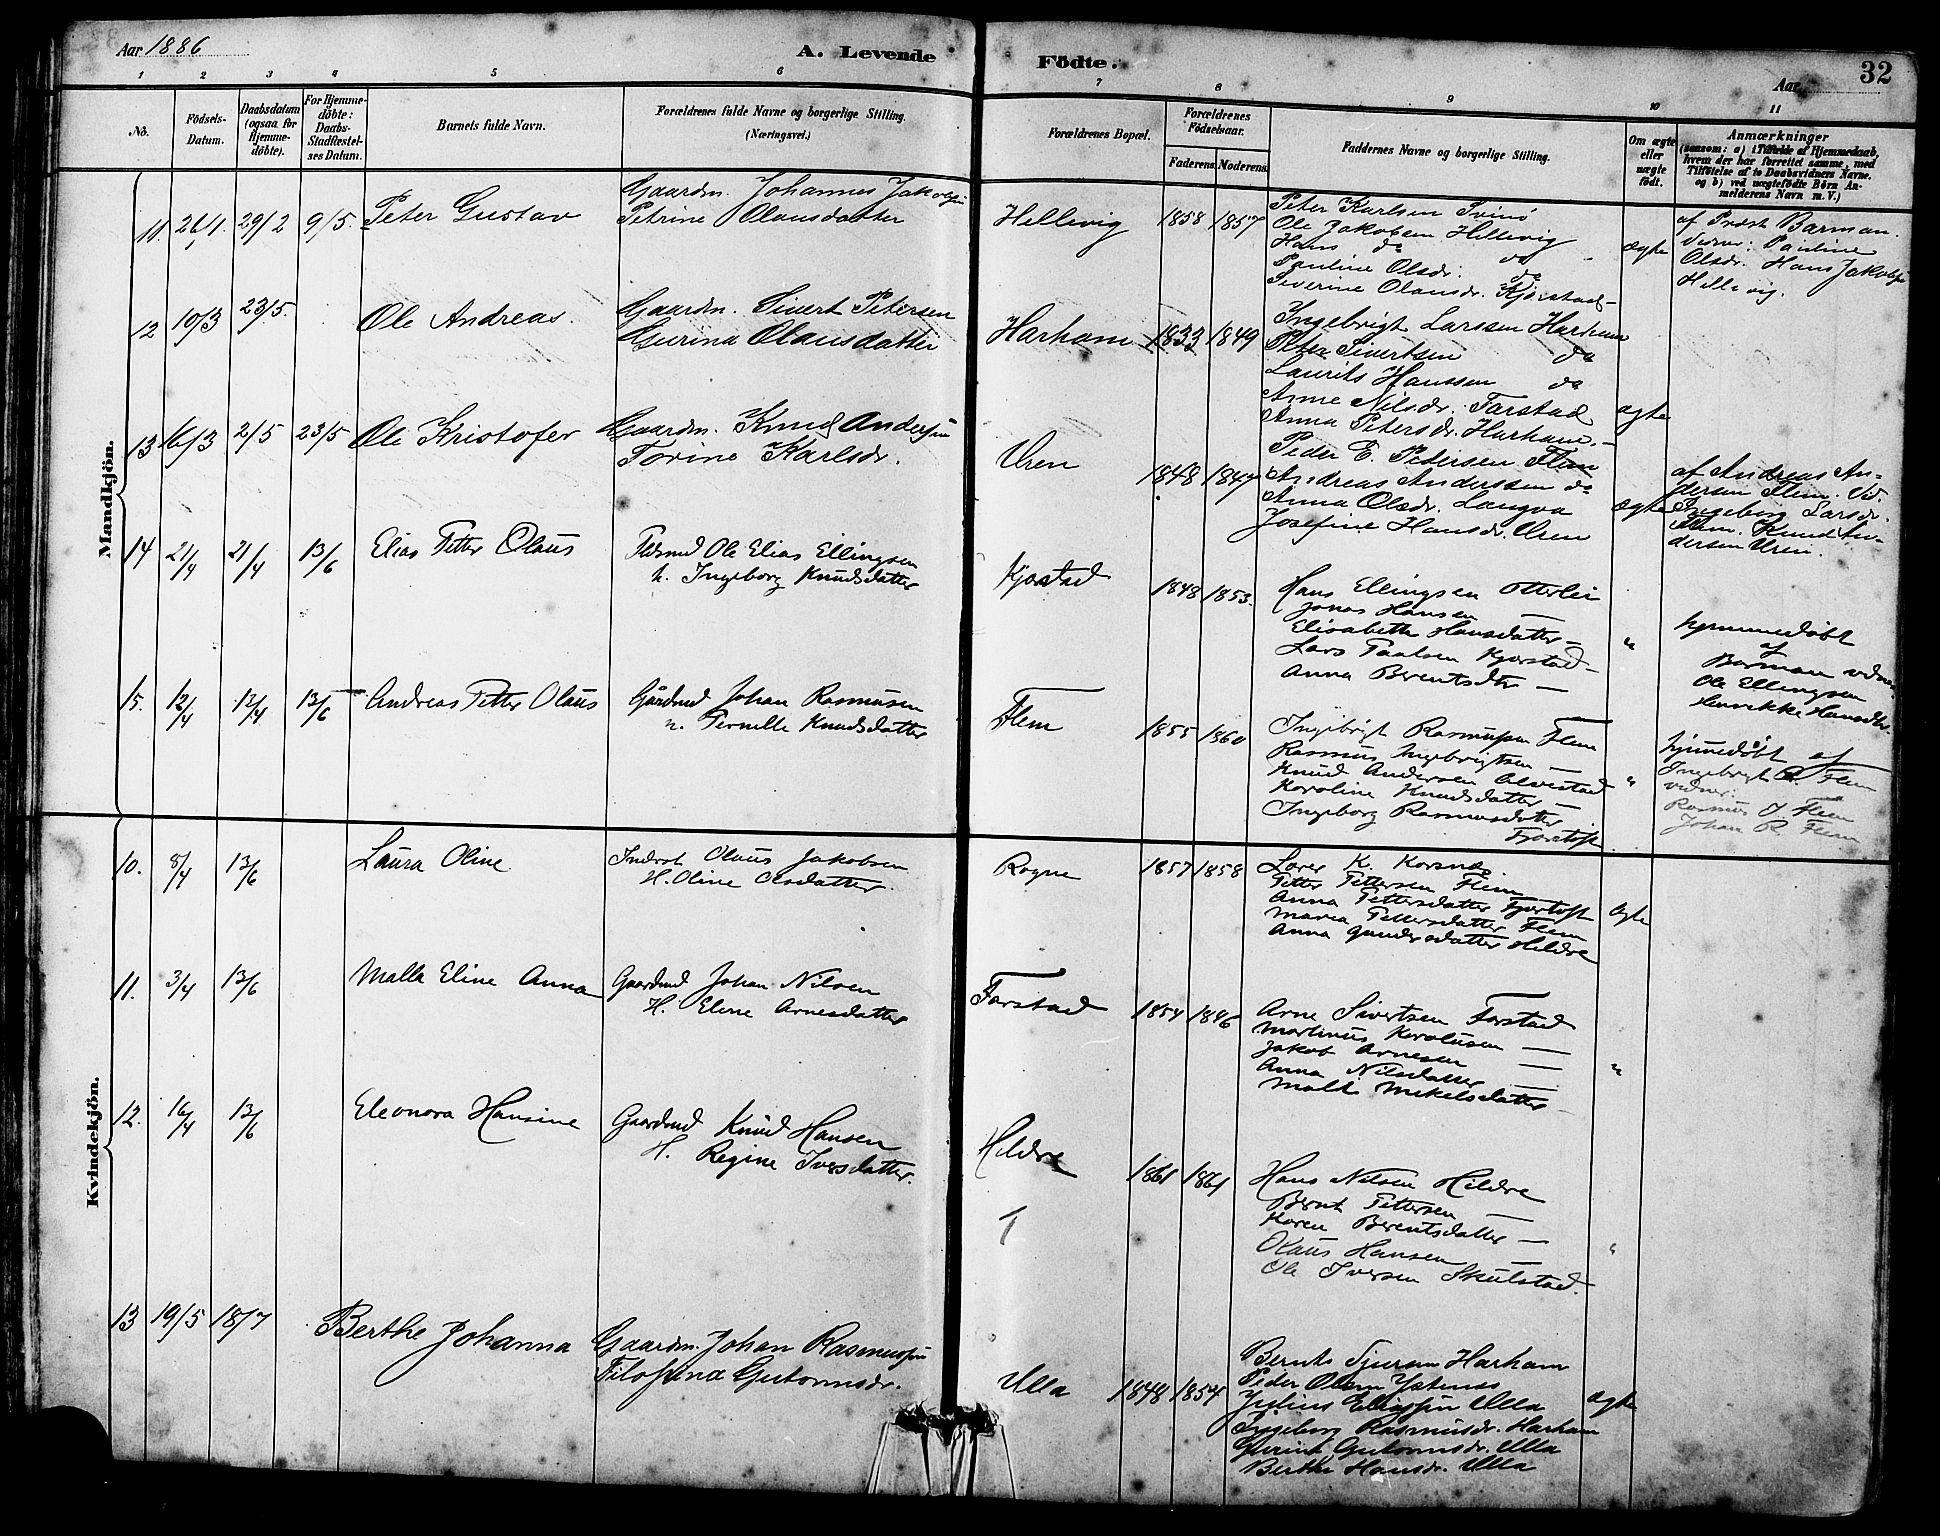 Aar 1886
A. Levende Födte.
Aar
32
1 2 3 4 5 6 7 8 9 10 11
No.
Födsels-Datum.
Daabsdatum (ogsaa for Hjemme-döbte).
For Hjemme-döbte: Daabs-Stadfæstel-ses Datum.
Barnets fulde Navn.
Forældrenes fulde Navne og borgerlige Stilling. (Næringsvei.)
Forældrenes Bopæl.
Forældrenes Födselsaar.
Faderens. Moderens.
Faddernes Navne og borgerlige Stilling.
Om ægte eller uægte födt.
Anmærkninger
(saasom: a) i Tilfælde af Hjemmedaab,
hvem der har forrettet samme, med
Tilföielse af to Daabsvidners Navne.
og b) ved uægtefödte Börn An-
melderens Navn m. V.)
Mandkjön.
11. 26/1. 29/2 9/5. Peter Gustav
Gaardm. Johannes Jakobsen
Petrine Olausdatter
Hellevig 1858 1857
Peter Karlsen Svinö
Ole Jakobsen Hellevig
Hans do do
Pauline Olsdr. do
Severine Olausdr. Kjørstad
ægte
af Præst Barman.
Vidner: Pauline
Olsdr. Hans Jakobsen
Hellevig.
12 10/3 23/5. Ole Andreas.
Gaardm. Sivert Petersen
Gurina Olausdatter
Harham 1833 1849
Ingebrigt Larssen Harham
Peter Sivertsen do
Laurits Hanssen do
Anne Nilsdr. Farstad
Anna Petersdr. Harham.
ægte
13 16/3 2/5 23/5 Ole Kristofer
Gaardm. Knud Andersen
Torine Karlsdr.
Uren 1848 1847
Peder E. Pedersen Flem
Andreas Anderssen do
Anna Olsdr. Langva
Josefine Hansdr. Uren
ægte
af Andreas An-
dersen Flem. Vid.
Ingeborg Larsdr.
Flem. Knud An-
dersen Uren.
14 2/4 21/4 13/6 Elias Petter Olaus
Ole Elias Ellingsen
h. Ingeborg Knudsdatter
Kjorstad 1848 1853.
Hans Ellingsen Otterlei
Jonas Hansen —
Elisabeth Hansdatter —
Lars Paalsen Kjorstad —
Anna Berentsdtr —
"
hjemmedøbt
af
Barman vidner
Ole Ellingsen
Henrikke Hansdtr
15. 12/4 12/4 13/6 Andreas Petter Olaus
Gårdmd Johan Rasmusen
h. Pernille Knudsdatter
Flem 1855 1860
Ingebrigt Rasmussen Flem
Rasmus Ingebrigtsen —
Knud Andersen Alvestad
Karoline Knudsdatter —
Ingeborg Rasmusdatter
Fjortoft
"
hjemmedøbt af
Ingebrigt R. Flem
vidner:
Rasmus J Flem
Johan R. Flem
Kvindekjön.
10. 8/4 13/6 Laura Oline
Inderst Olaus Jakobsen
H. Oline Olsdatter.
Rogne 1857 1858
K. Korsnæs
Petter Pettersen Flem
Anna Pettersdatter Fjortoft
Maren Pettersdatter Flem
Anna Gundersdatter Hildre
ægte
11. 3/4 13/6 Malla Eline Anna
Gaardmd Johan Nilsen
H. Elene Arnesdatter
Farstad 1854 1846
Arne Sivertsen Farstad
Martinus Karolusen —
Jakob Arnesen —
Anna Nilsdatter —
Malli Mikelsdatter —
"
12. 16/4 13/6 Eleonora Hansine
Gaardmd Knud Hansen
H. Regine Iversdatter.
Hildre 1861 1861
Hans Nilsen Hildre
Bernt Pettersen —
Karen Berentsdatter —
Olaus Hansen —
Ole Iversen Skulstad.
"
13 19/5 18/7 Berthe Johanna
Gaardm. Johan Rasmussen
Gutormsdr.
Ulla 1848 1854
Harham
Peder Olsen
Julius Eliassen Ulla
Ingeborg Rasmusdr. Harham
Gurine Gutormsdr. Ulla
Berthe Hansdr. Ulla
ægte